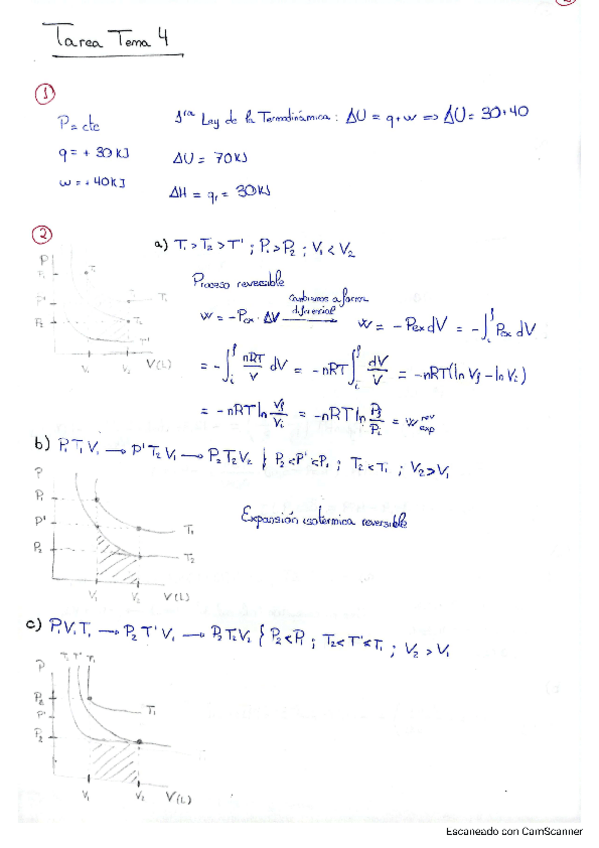 Tarea Tema 4
1
P = cte
1ra Ley de la Termodinámica: ΔU = q+w ⇒ ΔU = 30+40
q = + 30 KJ
ΔU = 70 KJ
w = + 40 KJ
ΔH = qp = 30 KJ
2
a) T1 > T2 > T' ; P1 > P2 ; V1 < V2
P
P1
T1
P'
T1
P2
T2
T'
V1 V2 V(L)
Proceso reversible
w = -Pex · ΔV cambiamos a forma diferencial w = -Pex dV = -∫if Pex dV
= -∫if nRT/V dV = -nRT ∫if dV/V = -nRT(ln Vf - ln Vi)
= -nRT ln Vf/Vi = -nRT ln Pf/Pi = w rev exp
b) P1 T1 V1 → P' T2 V1 → P2 T2 V2 } P2 < P' < P1 ; T2 < T1 ; V2 > V1
P
P1
P'
T1
P2
T2
V1 V2 V(L)
Expansión isotérmica reversible
c) P1 V1 T1 → P2 T' V1 → P2 T2 V1 { P2 < P1 ; T2 < T' < T1 ; V2 > V1
P
T' T1
P2
T1
P'
P2
V1 V2 V(L)
Escaneado con CamScanner